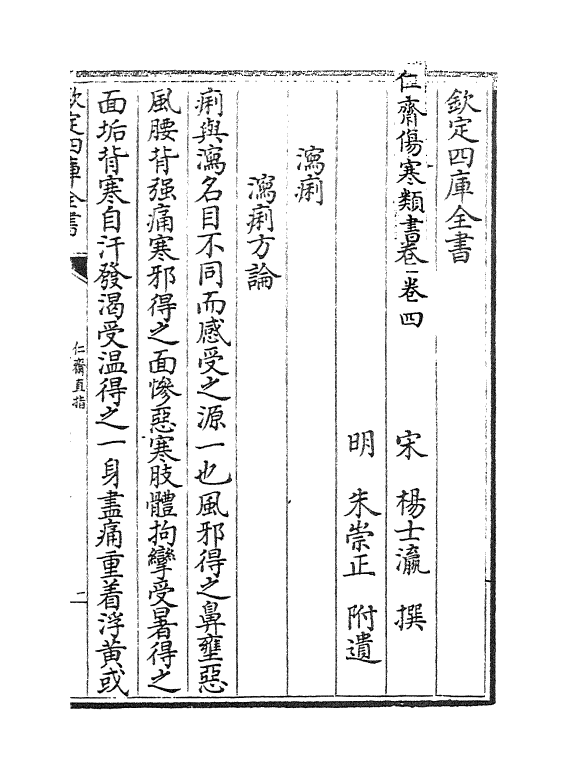 欽定四庫全書
仁齋傷寒類書卷一卷四
宋 楊士瀛 撰
明 朱崇正 附遺
瀉痢
瀉痢方論
痢與瀉名目不同而感受之源一也風邪得之鼻壅惡
風腰背强痛寒邪得之面慘惡寒肢體拘攣受暑得之
面垢背寒自汗發渴受温得之一身盡痛重着浮黃或
欽定四庫全書
仁齋直指